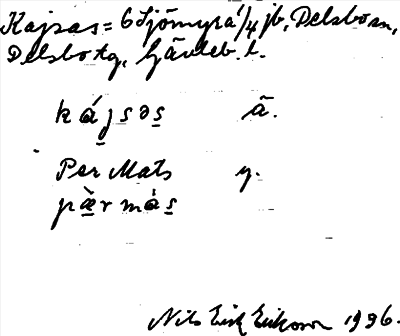 Kajsas = 6 Sjömyra 1/4 jb, Delsbo sn,
Delsbo tg, Gävleb. l.
kájsəs ã.
Per Mats y.
pæ̀r màs
Nils Erik Eriksson 1936.